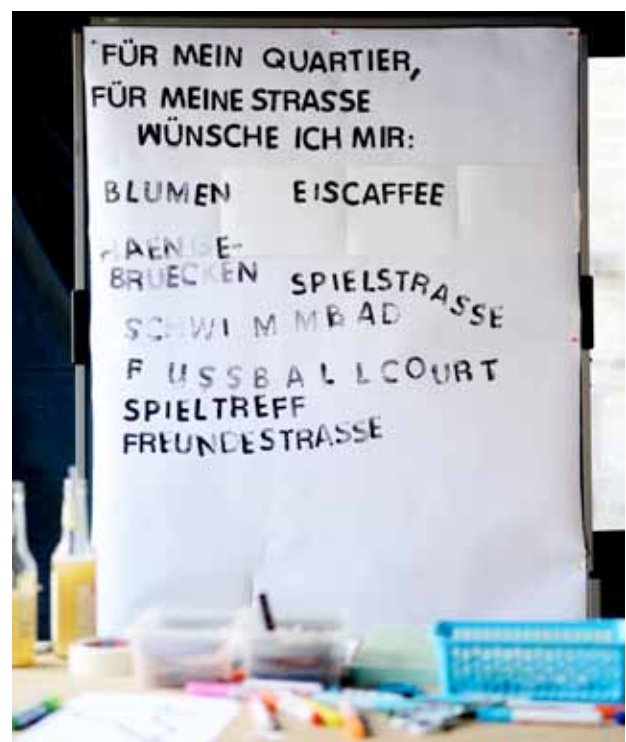 FÜR MEIN QUARTIER,
FÜR MEINE STRASSE
WÜNSCHE ICH MIR:
BLUMEN EISCAFFEE
HAENGE-
BRUECKEN SPIELSTRASSE
SCHWIMMBAD
FUSSBALLCOURT
SPIELTREFF
FREUNDESTRASSE